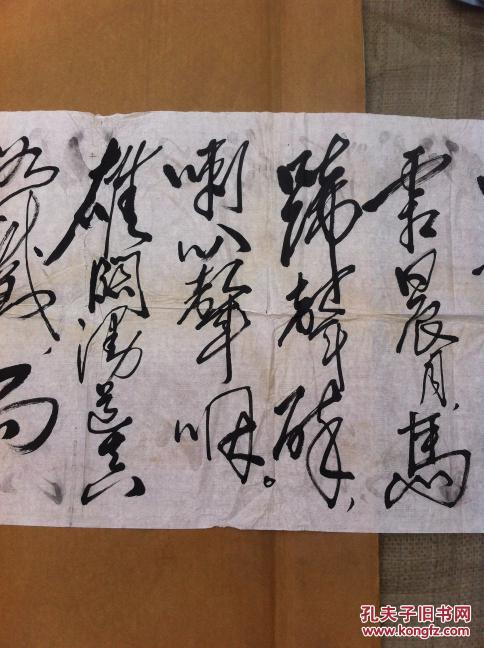 霜晨月，馬
蹄聲碎，
喇叭聲咽。
雄關漫道真
如鐵，而
孔夫子旧书网
www.kongfz.com